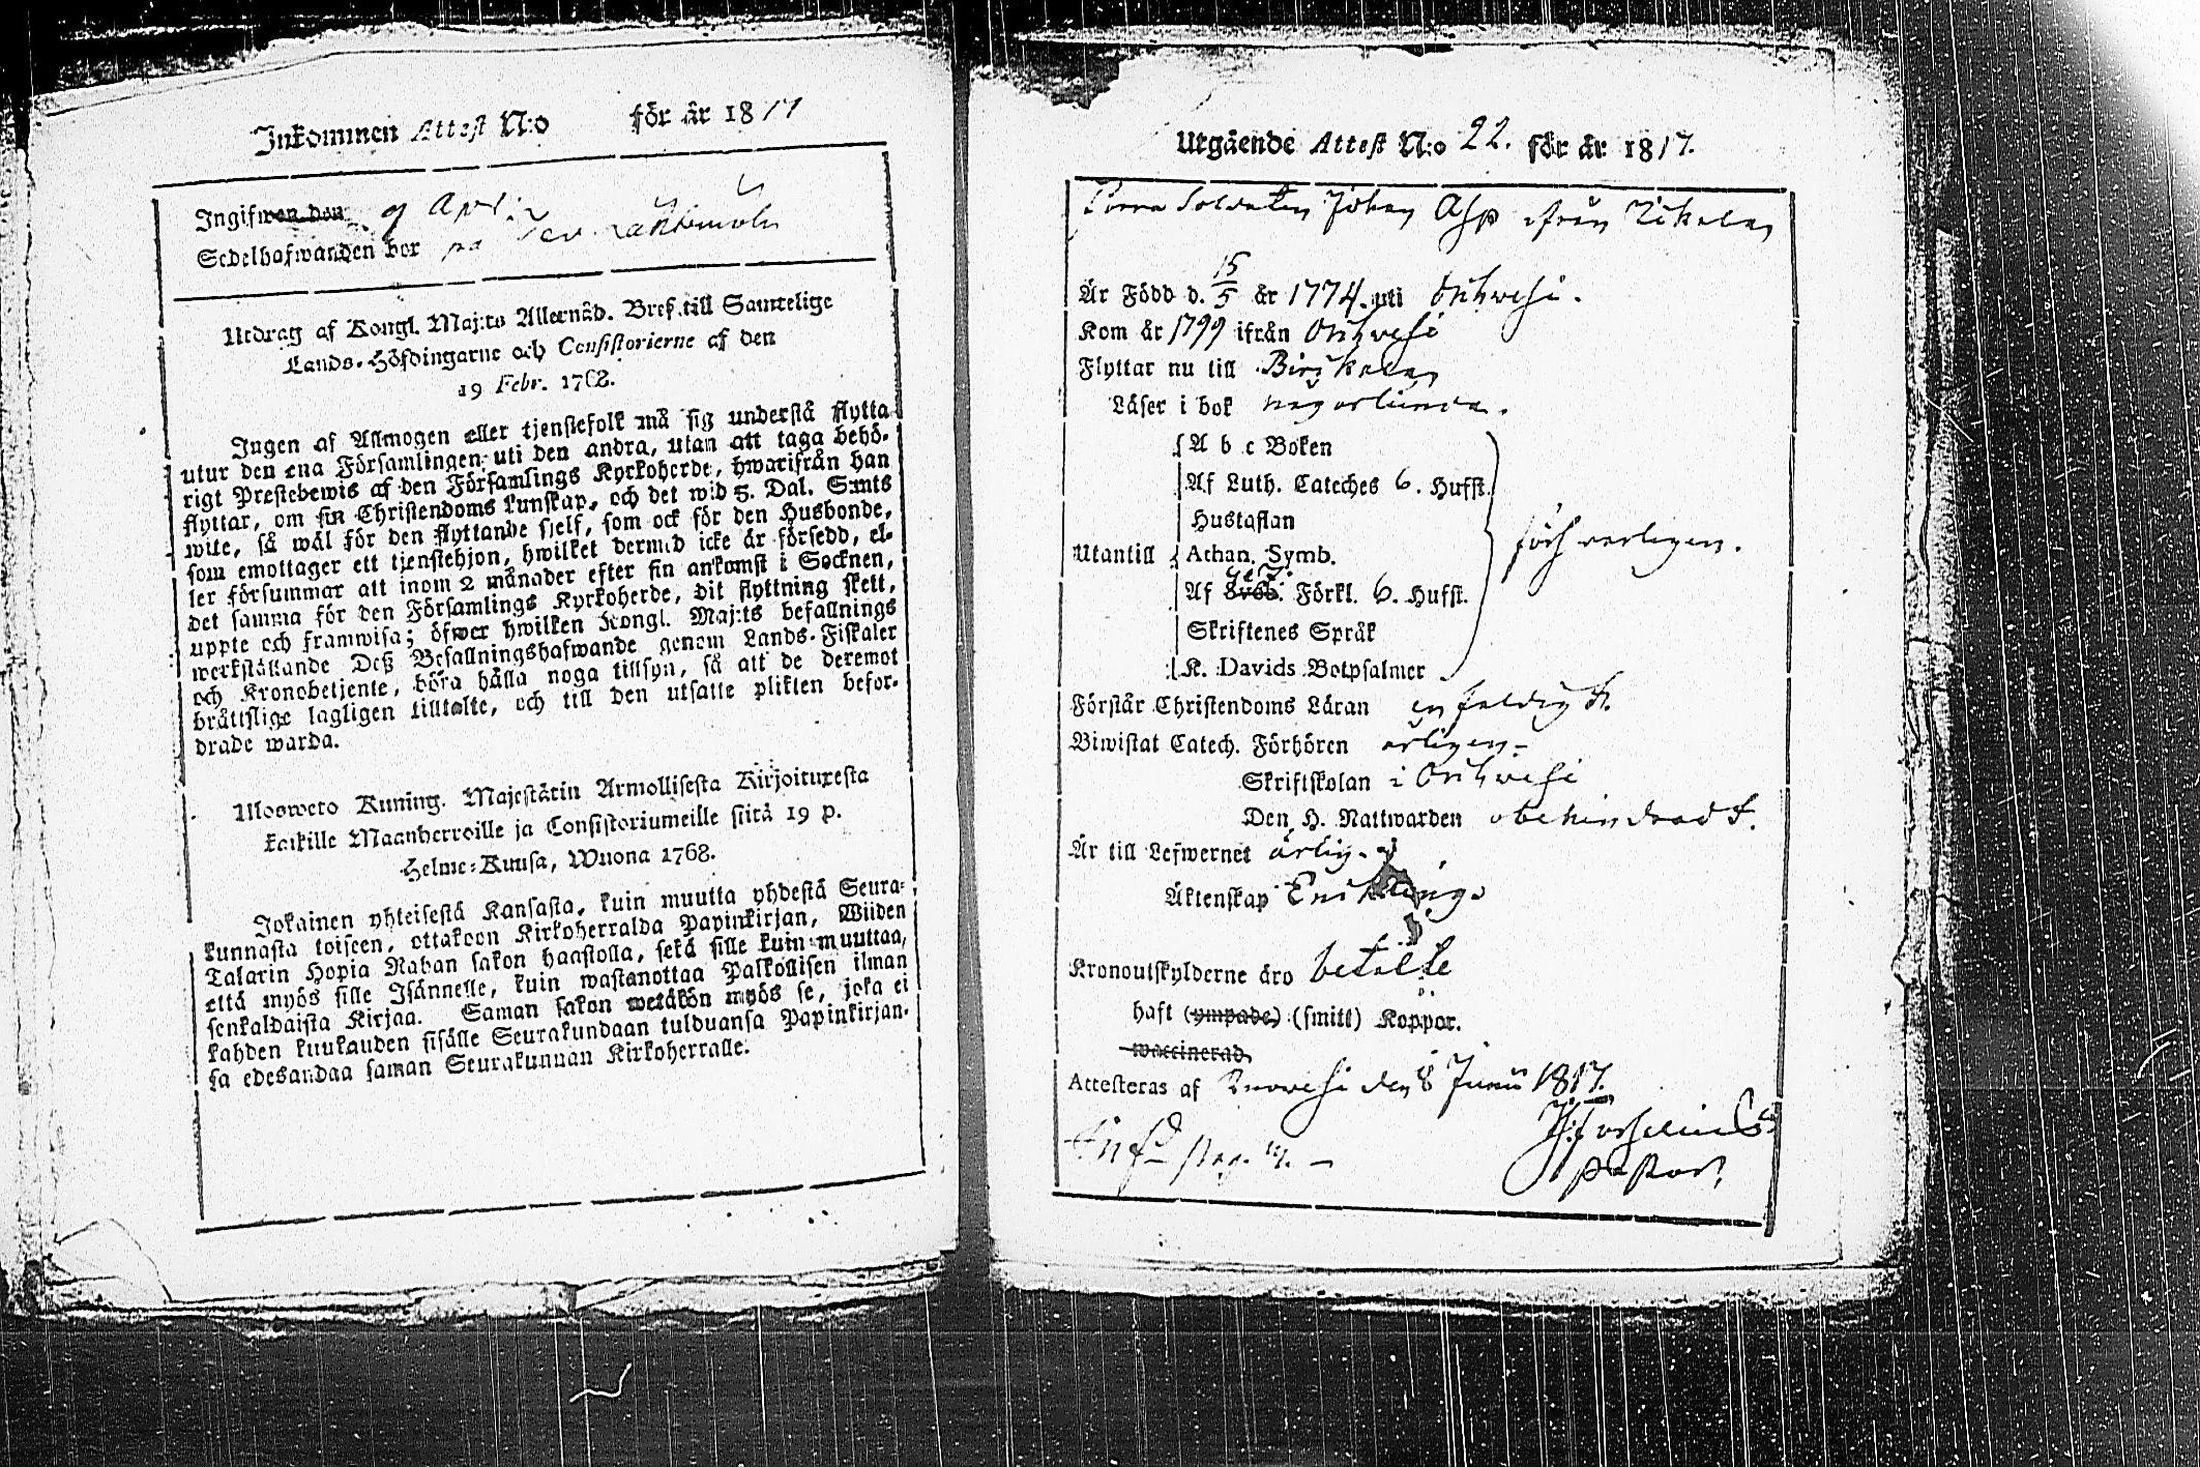 Inkommen Attest N:o för år 1817
Ingifwen den 9 Apr
Sedelhafwanden bor på
Utdrag af Kongl. Maj:ts Allernåd. Bref till Samtelige
Lands-Höfdingarne och Consistorierne af den
19 Febr. 1762.
Ingen af Allmogen eller tjenstefolk må sig understå flytta
utur den ena Församlingen uti den andra, utan att taga behö-
rigt Prestebewis af den Församlings Kyrkoherde, hwarifrån han
flyttar, om sin Christendoms kunskap, och det wid 5. Dal. S:mts
wite, så wäl för den flyttande sjelf, som ock för den Husbonde,
som emottager ett tjenstehjon, hwilket dermed icke är försedd, el-
ler försummar att inom 2 månader efter sin ankomst i Socknen,
det samma för den Församlings Kyrkoherde, dit flyttning skett,
uppte och framwisa; öfwer hwilken Kongl. Maj:ts befallnings
werkställande Deß Befallningshafwande genom Lands-Fiskaler
och Kronobetjente, böra hålla noga tillsyn, så att de deremot
bråttslige lagligen tilltalte, och till den utsatte plikten befor-
drade warda.
Ulosweto Kuning. Majestätin Armollisesta Kirjoituxesta
kaikille Maanherroille ja Consistoriumeille siitä 19 p.
Helme-Kuusa, Wuona 1768.
Jokainen yhteisestä Kansasta, kuin muutta yhdestä Seura-
kunnasta toiseen, ottakoon Kirkoherralda Papinkirjan, Wiiden
Talarin Hopia Rahan sakon haastolla, sekä sille kuin muuttaa,
että myös sille Isännelle, kuin wastanottaa Palkollisen ilman
senkaldaista Kirjaa. Saman sakon wetäkön myös se, joka ei
kahden kuukauden sisälle Seurakundaan tulduansa Papinkirjan-
sa edesandaa saman Seurakunnan Kirkoherralle.
Utgående Attest N:o 22. för år 1817.
Soldaten Johan Asp ifrån
Är Född d. 15/5 år 1774. uti Orihwesi.
Kom år 1799 ifrån Orihwesi
Flyttar nu till Birkala
Läser i bok någorlunda.
A b c Boken
Af Luth. Cateches 6. Hufst.
Hustaflan
Utantill Athan. Symb. försvarligen.
Af Sveb. Förkl. 6. Hufst.
Skriftenes Språk
K. Davids Botpsalmer
Förstår Christendoms Läran enfaldigt.
Biwistat Catech. Förhören årligen.
Skriftskolan i Orihwesi
Den H. Nattwarden obehindradt.
Är till Lefwernet ärlig.
Äktenskap
Kronoutskylderne äro betalte
haft (ympade) (smitt) Koppor.
waccinerad.
Attesteras af Ruovesi den 8 Junii 1817.
Pastor.